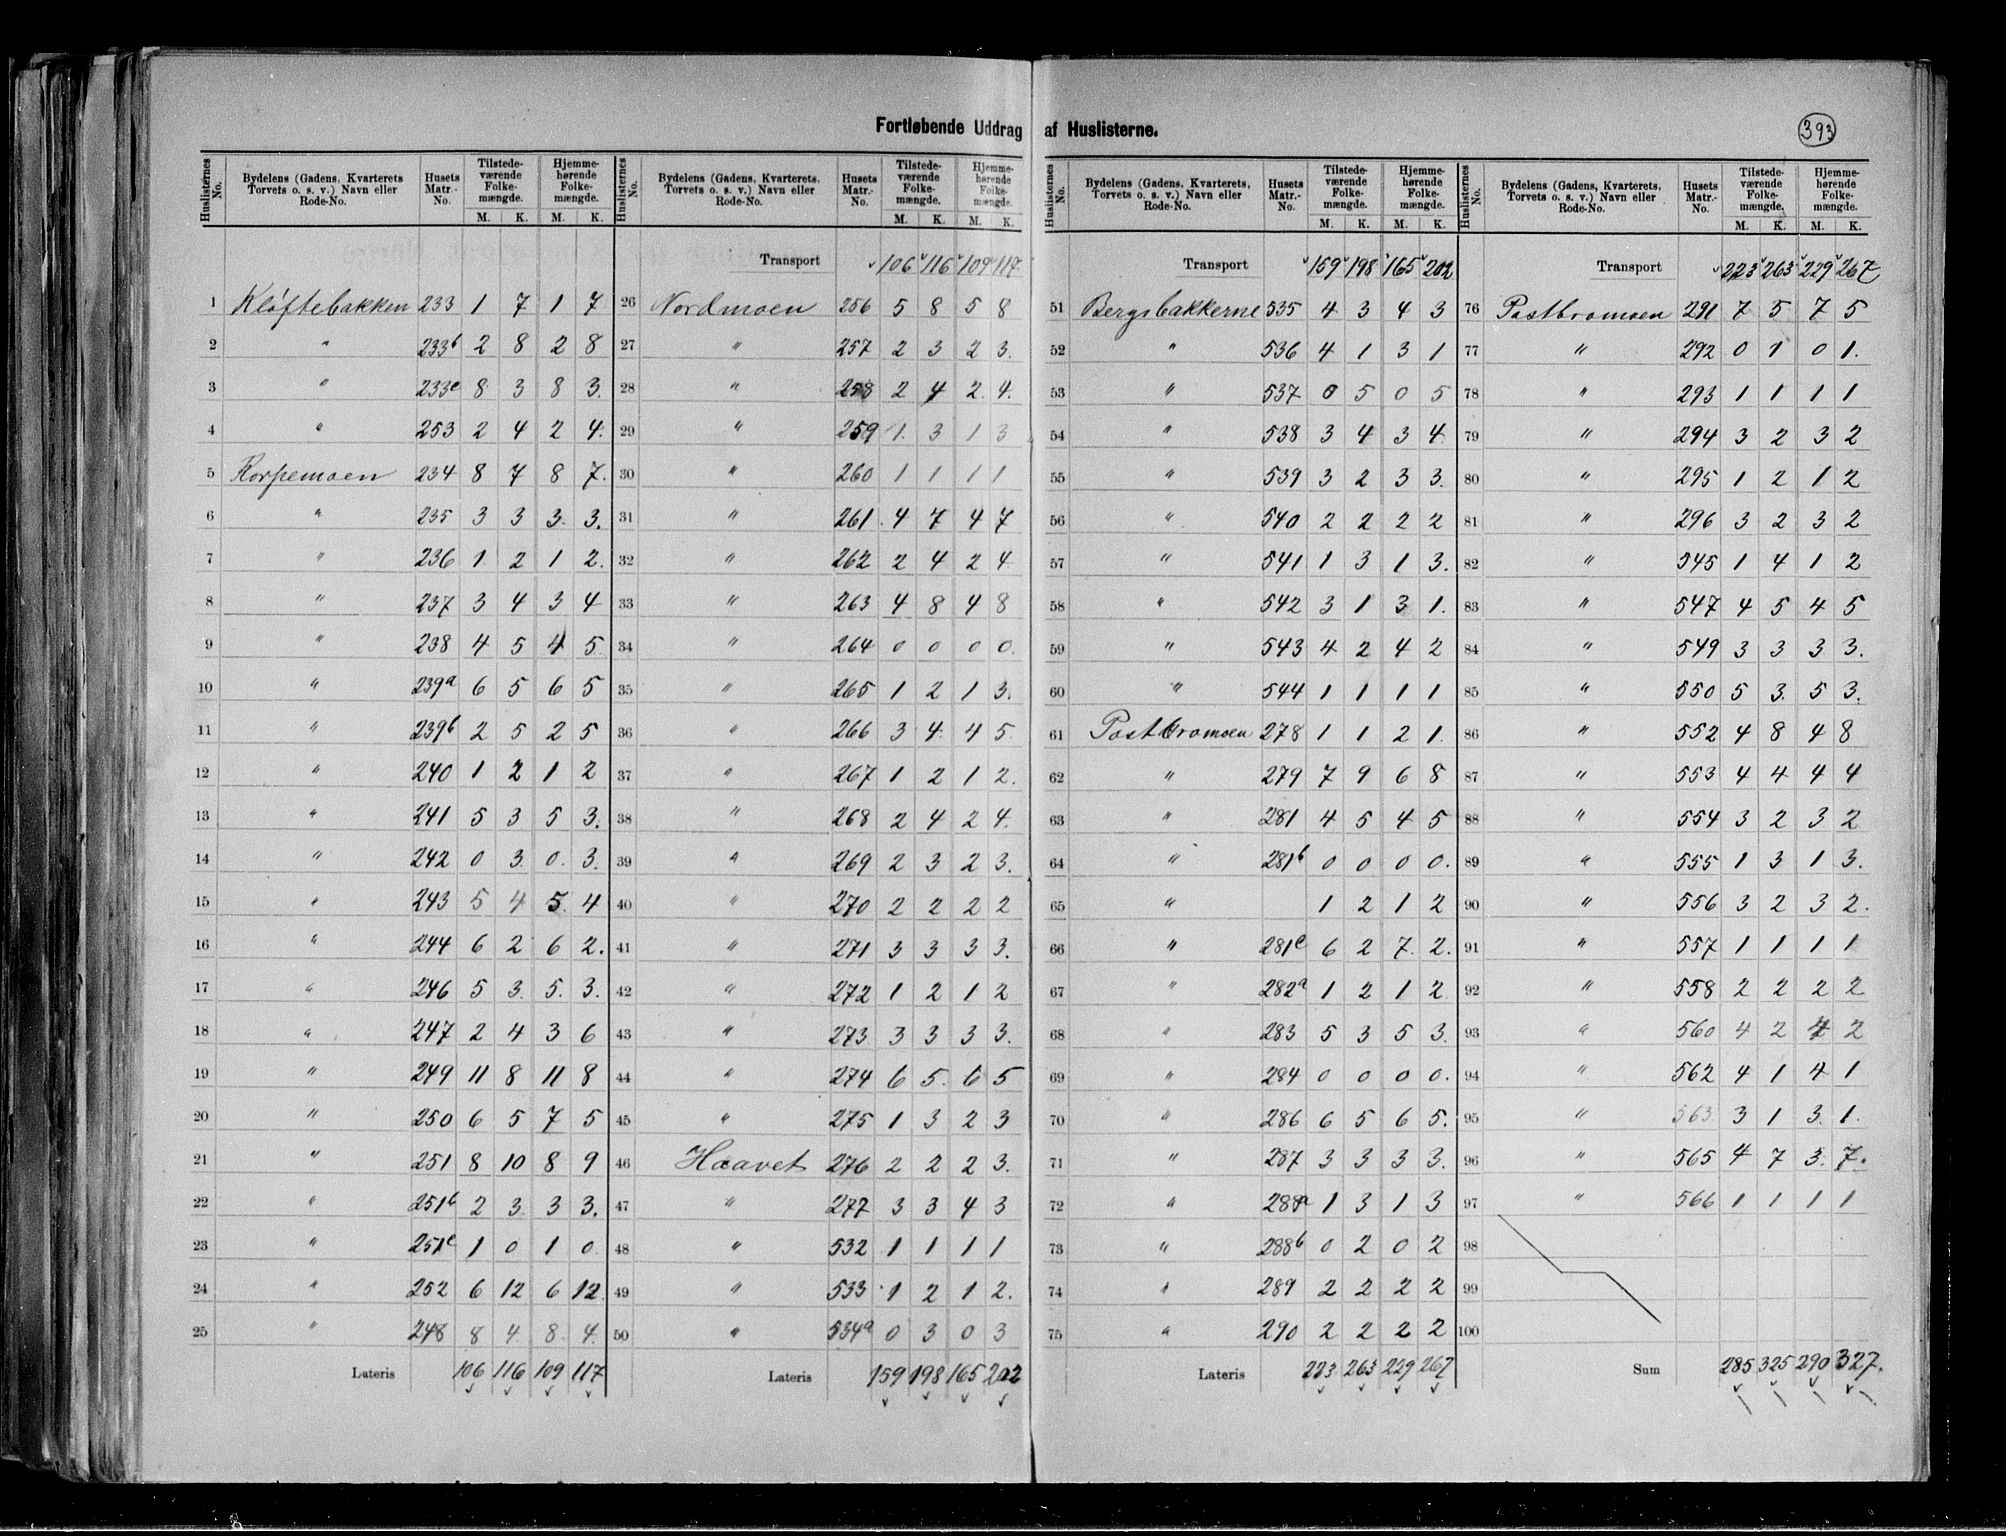 Fortløbende Uddrag af Huslisterne.
393
Huslisternes No. | Bydelens (Gadens, Kvarterets Torvets o. s. v.) Navn eller Rode-No. | Husets Matr.-No. | Tilstedeværende Folkemængde. M. K. | Hjemmehørende Folkemængde. M. K.
1 Kløftebakken 233 1 7 1 7
2 " 233b 2 8 2 8
3 " 233c 8 3 8 3.
4 " 253 2 4 2 4.
5 Korpemoen 234 8 7 8 7.
6 " 235 3 3 3. 3.
7 " 236 1 2 1 2.
8 " 237 3 4 3 4
9 " 238 4 5 4 5
10 " 239a 6 5 6 5
11 " 239b 2 5 2 5
12 " 240 1 2 1 2
13 " 241 5 3 5 3.
14 " 242 0 3 0. 3.
15 " 243 5 4 5. 4
16 " 244 6 2 6 2.
17 " 246 5 3. 5. 3.
18 " 247 2 4 3 6
19 " 249 11 8 11 8
20 " 250 6 5 7 5
21 " 251 8 10 8 9
22 " 251b 2 3 3 3.
23 " 251c 1 0 1 0
24 " 252 6 12 6 12
25 " 248 8 4 8 4.
Lateris 106 116 109 117
Huslisternes No. | Bydelens (Gadens, Kvarterets, Torvets o. s. v.) Navn eller Rode-No. | Husets Matr.-No. | Tilstedeværende Folkemængde. M. K. | Hjemmehørende Folkemængde. M. K.
Transport 106 116 109 117
26 Nordmoen 256 5 8 5 8
27 " 257 2 3 2 3.
28 " 258 2 4 2. 4.
29 " 259 1. 3 1 3
30 " 260 1 1 1 1
31 " 261 4 7 4 7
32 " 262 2 4 2 4
33 " 263 4 8 4 8
34 " 264 0 0 0 0.
35 " 265 1 2 1 3.
36 " 266 3 4. 4 5.
37 " 267 1 2 1 2.
38 " 268 2 4 2 4.
39 " 269 2 3 2 3.
40 " 270 2 2 2 2
41 " 271 3 3 3 3.
42 " 272 1 2 1 2
43 " 273 3 3 3 3.
44 " 274 6 5. 6 5
45 " 275 1 3 2 3
46 Haavet 276 2 2 2 3.
47 " 277 3 3 4 3
48 " 532 1 1 1 1
49 " 533 1 2 1 2.
50 " 534a 0 3 0 3
Lateris 159 198 165 202
Huslisternes No. | Bydelens (Gadens, Kvarterets, Torvets o. s. v.) Navn eller Rode-No. | Husets Matr.-No. | Tilstedeværende Folkemængde. M. K. | Hjemmehørende Folkemængde. M. K.
Transport 159 198 165 202
51 Bergsbakkerne 535 4 3 4 3
52 " 536 4 1 3 1
53 " 537 0 5 0 5
54 " 538 3 4 3 4
55 " 539 3 2 3 3.
56 " 540 2 2 2 2
57 " 541 1 3 1 3.
58 " 542 3 1 3 1.
59 " 543 4 2 4 2
60 " 544 1 1 1 1
61 Postbromoen 278 1 1 2 1.
62 " 279 7 9 6 8
63 " 281 4 5 4 5
64 " 281b 0 0 0 0.
65 " 1 2 1 2
66 " 281c 6 2 7. 2.
67 " 282a 1 2 1 2
68 " 283 5 3 5 3.
69 " 284 0 0 0 0.
70 " 286 6 5 6 5.
71 " 287 3 3 3 3.
72 " 288a 1 3 1 3
73 " 288b 0 2 0 2
74 " 289 2 2 2 2
75 " 290 2 2 2 2
Lateris 223 263 229 267
Huslisternes No. | Bydelens (Gadens, Kvarterets, Torvets o. s. v.) Navn eller Rode-No. | Husets Matr.-No. | Tilstedeværende Folkemængde. M. K. | Hjemmehørende Folkemængde. M. K.
Transport 223 263 229 267
76 Postbromoen 291 7 5 7 5
77 " 292 0 1 0 1.
78 " 293 1 1 1 1
79 " 294 3 2 3 2
80 " 295 1 2 1 2
81 " 296 3 2 3 2
82 " 545 1 4 1 2
83 " 547 4 5 4 5
84 " 549 3 3 3. 3.
85 " 550 5 3. 5 3.
86 " 552 4 8 4 8
87 " 553 4 4 4 4
88 " 554 3 2 3 2
89 " 555 1 3 1 3.
90 " 556 3 2 3 2.
91 " 557 1 1 1 1
92 " 558 2 2 2 2
93 " 560 4 2 4 2
94 " 562 4 1 4 1
95 " 563 3 1 3. 1.
96 " 565 4 7 3. 7.
97 " 566 1 1 1 1
98
99
100
Sum 285 325 290 327.